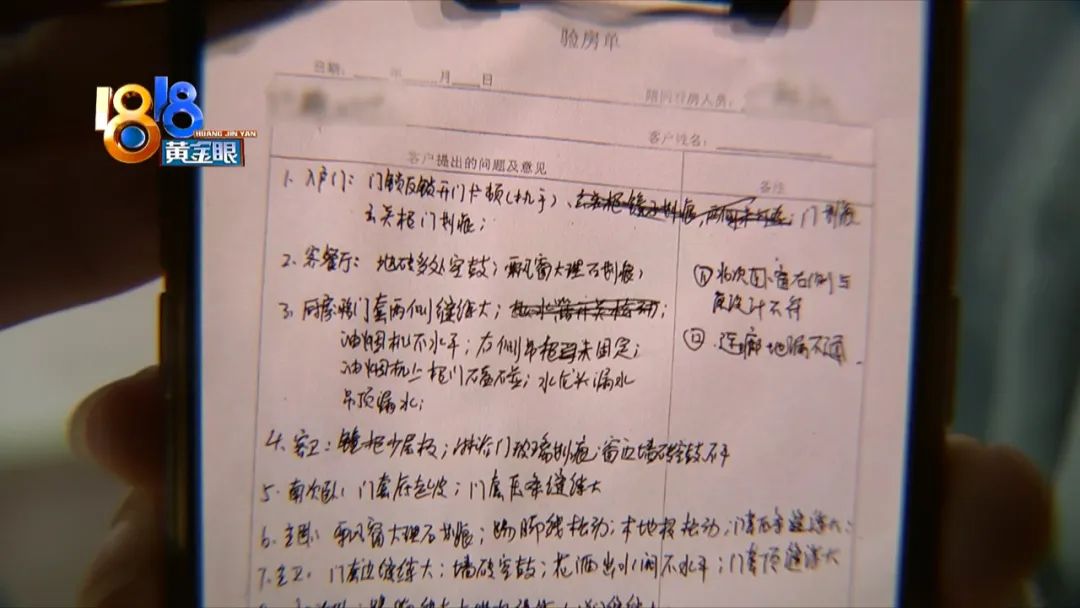 1818
HUANG JIN YAN
黄金眼
验房单
日期： 年 月 日
陪同验房人员：
客户姓名：
客户提出的问题及意见
备注
1. 入户门：门锁反锁开门卡顿(机子)、 门划痕
玄关柜门划痕；
2. 客餐厅：地砖多处空鼓；飘窗大理石划痕；
3. 厨房移门门套两侧缝缝大；
油烟机不水平；右侧吊柜未固定；
油烟机上柜门磕碰；水龙头漏水
吊顶漏水；
4. 客卫：镜柜少层板；淋浴门玻璃划痕；窗边墙砖空鼓不平
5. 南次卧：门套存起皮；门套后条缝缝大
6. 主卧：飘窗大理石划痕；踢脚线松动；木地板松动；门套后条缝缝大；
7. 主卫：门套边缝缝大；墙砖空鼓；花洒出水阀不水平；门套顶缝缝大
① 北次卧：窗右侧与
原设计不符
② 连廊地漏不通